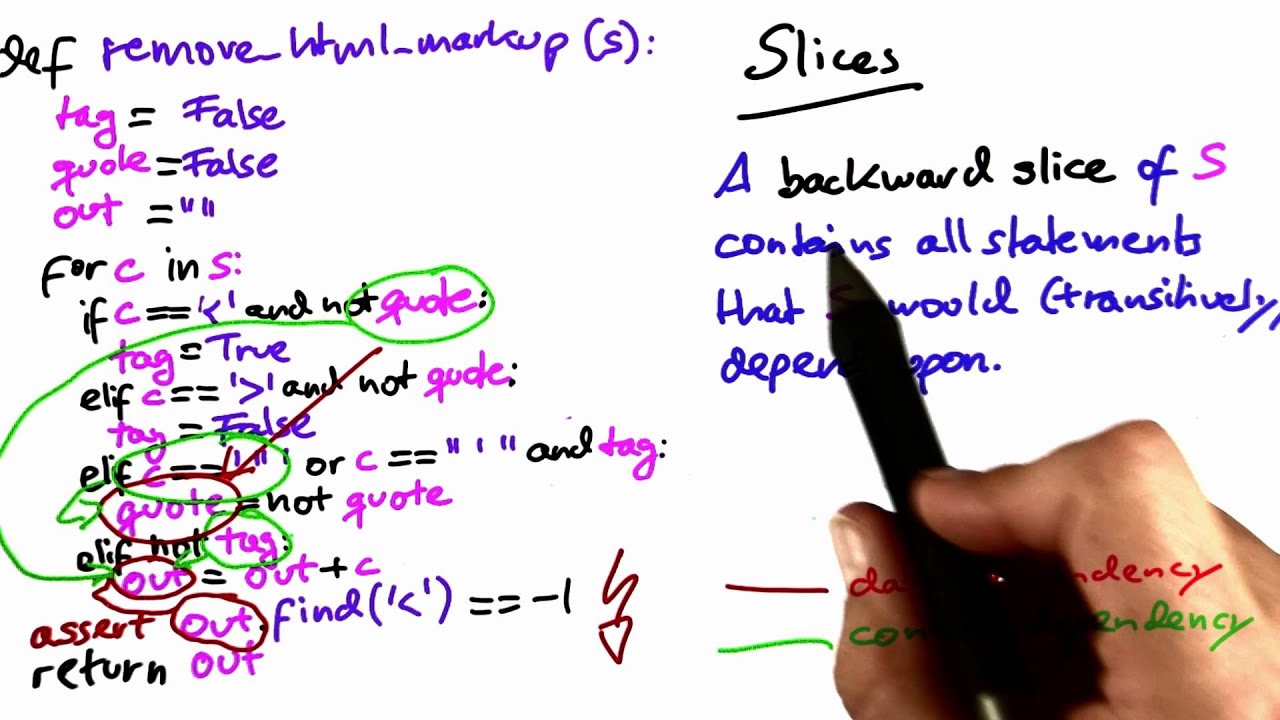 def remove_html_markup(s):
tag = False
quote = False
out = ""
for c in s:
if c == '<' and not quote:
tag = True
elif c == '>' and not quote:
tag = False
elif c == '"' or c == "'" and tag:
quote = not quote
elif not tag:
out = out + c
assert out.find('<') == -1
return out
Slices
A backward slice of S
contains all statements
that S would (transitively)
depend upon.
data dependency
control dependency